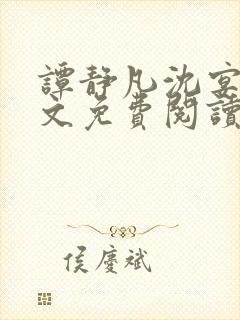 譚靜凡沈宴
文免費閱讀
侯慶斌